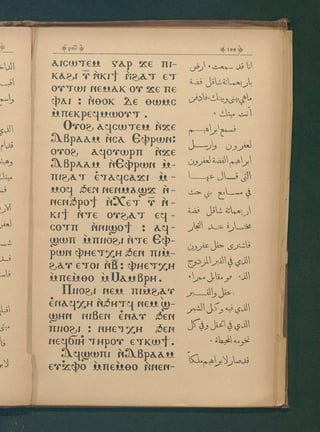 ⲁⲓⲥⲱⲧⲉⲙ ⲅⲁⲣ ϫⲉ ⲡⲓ-
ⲕⲁϩⲓ ⲛ̀ⲕⲓϯ ⲛ̀ϩⲁⲧ ⲉⲧ
ⲟⲩⲧⲱⲓ ⲛⲉⲙⲁⲕ ⲟⲩ ϫⲉ ⲡⲉ
ⲫⲁⲓ : ⲛ̀ⲑⲟⲕ ⲇⲉ ⲑⲱⲙⲥ
ⲙ̀ⲡⲉⲕⲣⲉϥⲙⲱⲟⲩⲧ .
Ⲟⲩⲟϩ ⲁϥⲥⲱⲧⲉⲙ ⲛ̀ϫⲉ
Ⲁⲃⲣⲁⲁⲙ ⲛ̀ⲥⲁ Ⲉⲫⲣⲱⲛ:
ⲟⲩⲟϩ ⲁϥⲟⲩⲱⲣⲡ ⲛ̀ϫⲉ
Ⲁⲃⲣⲁⲁⲙ ⲛ̀Ⲉⲫⲣⲱⲛ ⲙ̀-
ⲡⲓϩⲁⲧ ⲉ̀ⲧⲁϥⲥⲁϫⲓ ⲙ̀-
ⲙⲟϥ ϧⲉⲛ ⲛⲉⲛⲙⲁϣϫ ⲛ̀-
ⲛⲉⲛϣⲏⲣⲓ ⲛ̀Ⲭⲉⲧ ⲛ̀-
ⲕⲓϯ ⲛ̀ⲧⲉ ⲟⲩϩⲁⲧ ⲉϥ-
ⲥⲟⲧⲡ ⲛ̀ⲛⲓϣⲟϯ : ⲁϥ-
ϣⲱⲡ ⲙ̀ⲡⲓⲟϩⲓ ⲛ̀ⲧⲉ Ⲉⲫ-
ⲣⲱⲛ ⲫⲏⲉⲧⲭⲏ ϧⲉⲛ ⲡⲓⲙ̀-
ϩⲁⲩ ⲉⲧⲟⲓ ⲛ̀ⲃ̄: ⲫⲏⲉⲧⲭⲏ
ⲙ̀ⲡⲉⲙ̀ⲑⲟ ⲙ̀Ⲙⲁⲙⲃⲣⲏ.
Ⲡⲓⲓⲟϩⲓ ⲛⲉⲙ ⲡⲓⲙ̀ϩⲁⲩ
ⲉ̀ⲛⲁϥⲭⲏ ⲛ̀ϧⲏⲧϥ ⲛⲉⲙ ϣ̀-
ϣⲏⲛ ⲛⲓⲃⲉⲛ ⲉ̀ⲛⲁⲩ ϧⲉⲛ
ⲡⲓⲟϩⲓ : ⲛⲏⲉⲧⲭⲏ ϧⲉⲛ
ⲛⲉϥϭⲓⲏ ⲧⲏⲣⲟⲩ ⲉⲧⲕⲱϯ.
Ⲁϥϣⲱⲡⲓ ⲛ̀Ⲁⲃⲣⲁⲁⲙ
ⲉⲩϫⲫⲟ ⲙ̀ⲡⲉⲙ̀ⲑⲟ ⲛ̀ⲛⲉⲛ-
١٥٥
انا قد سمعت . ارض
باربعمائة شاقل فضة
ماهي بيني وبينك . فادفن
أنت ميتك .
فسمع ابراهيم
لعفرون وارسل
ابراهيم الفضة لعفرون
التي قال عنها
في مسامع بني حث
اربعمائة شاقل فضة
مختارة عند التجار
فاشترى حقل عفرون
الذي في القبر المزدوج
الذي هو مقابل ممرا .
حقل والقبر
الذي فيه وكل الشجر
الذي في الحقل وفي كل
تخومه المحيطة .
فصار لابراهيم ملكاً